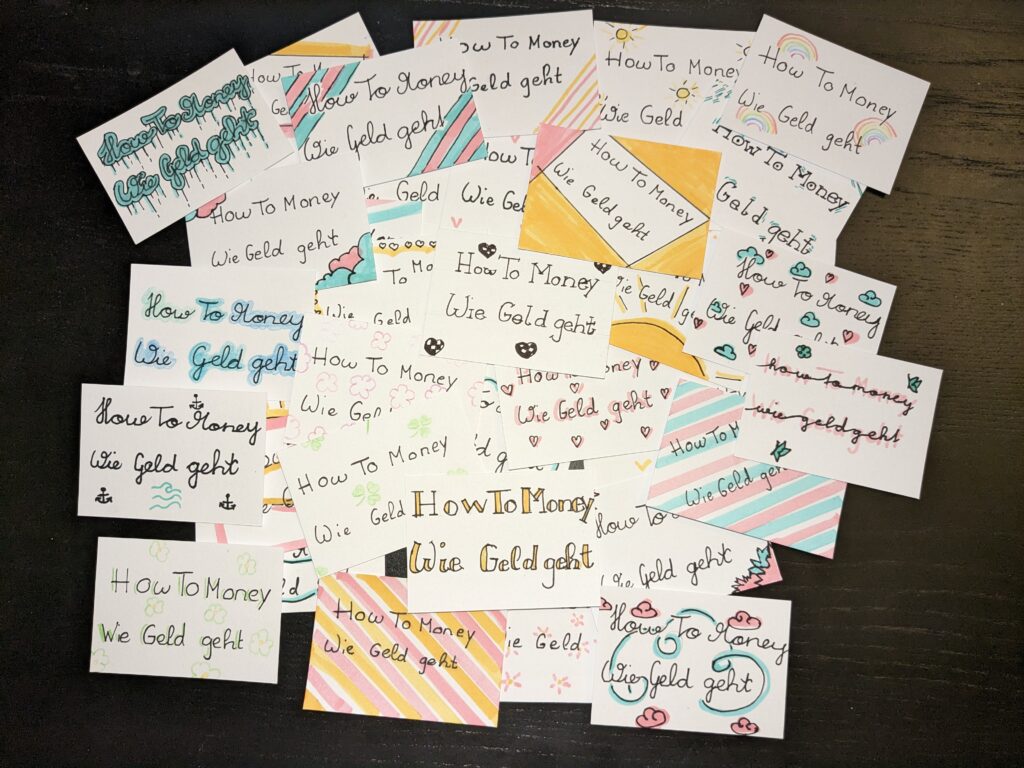 How To Money
Wie Geld geht
How To Money
How To Money
Wie Geld geht
How To Money
Geld geht
How To Money
Wie Geld
How To Money
Wie Geld geht
How To Money
Wie Geld geht
Geld
How To
Wie
How To Money
Wie Geld geht
How To Money
Geld geht
How To Money
Wie Geld geht
To
Wie Geld
How To Money
Wie Geld geht
Wie Geld
How To Money
Wie Geld
How To Money
Wie Geld geht
How To Money
Wie
How To Money
Wie Geld geht
how to money
wie geld geht
How To Money
Wie Geld geht
How To Money
Wie Geld
How To Money
Wie Geld geht
How To
Wie Geld geht
How To
Wie Geld geht
How To Money
Wie Geld geht
How To Money
Wie Geld geht
Geld
How To Money
Wie Geld geht